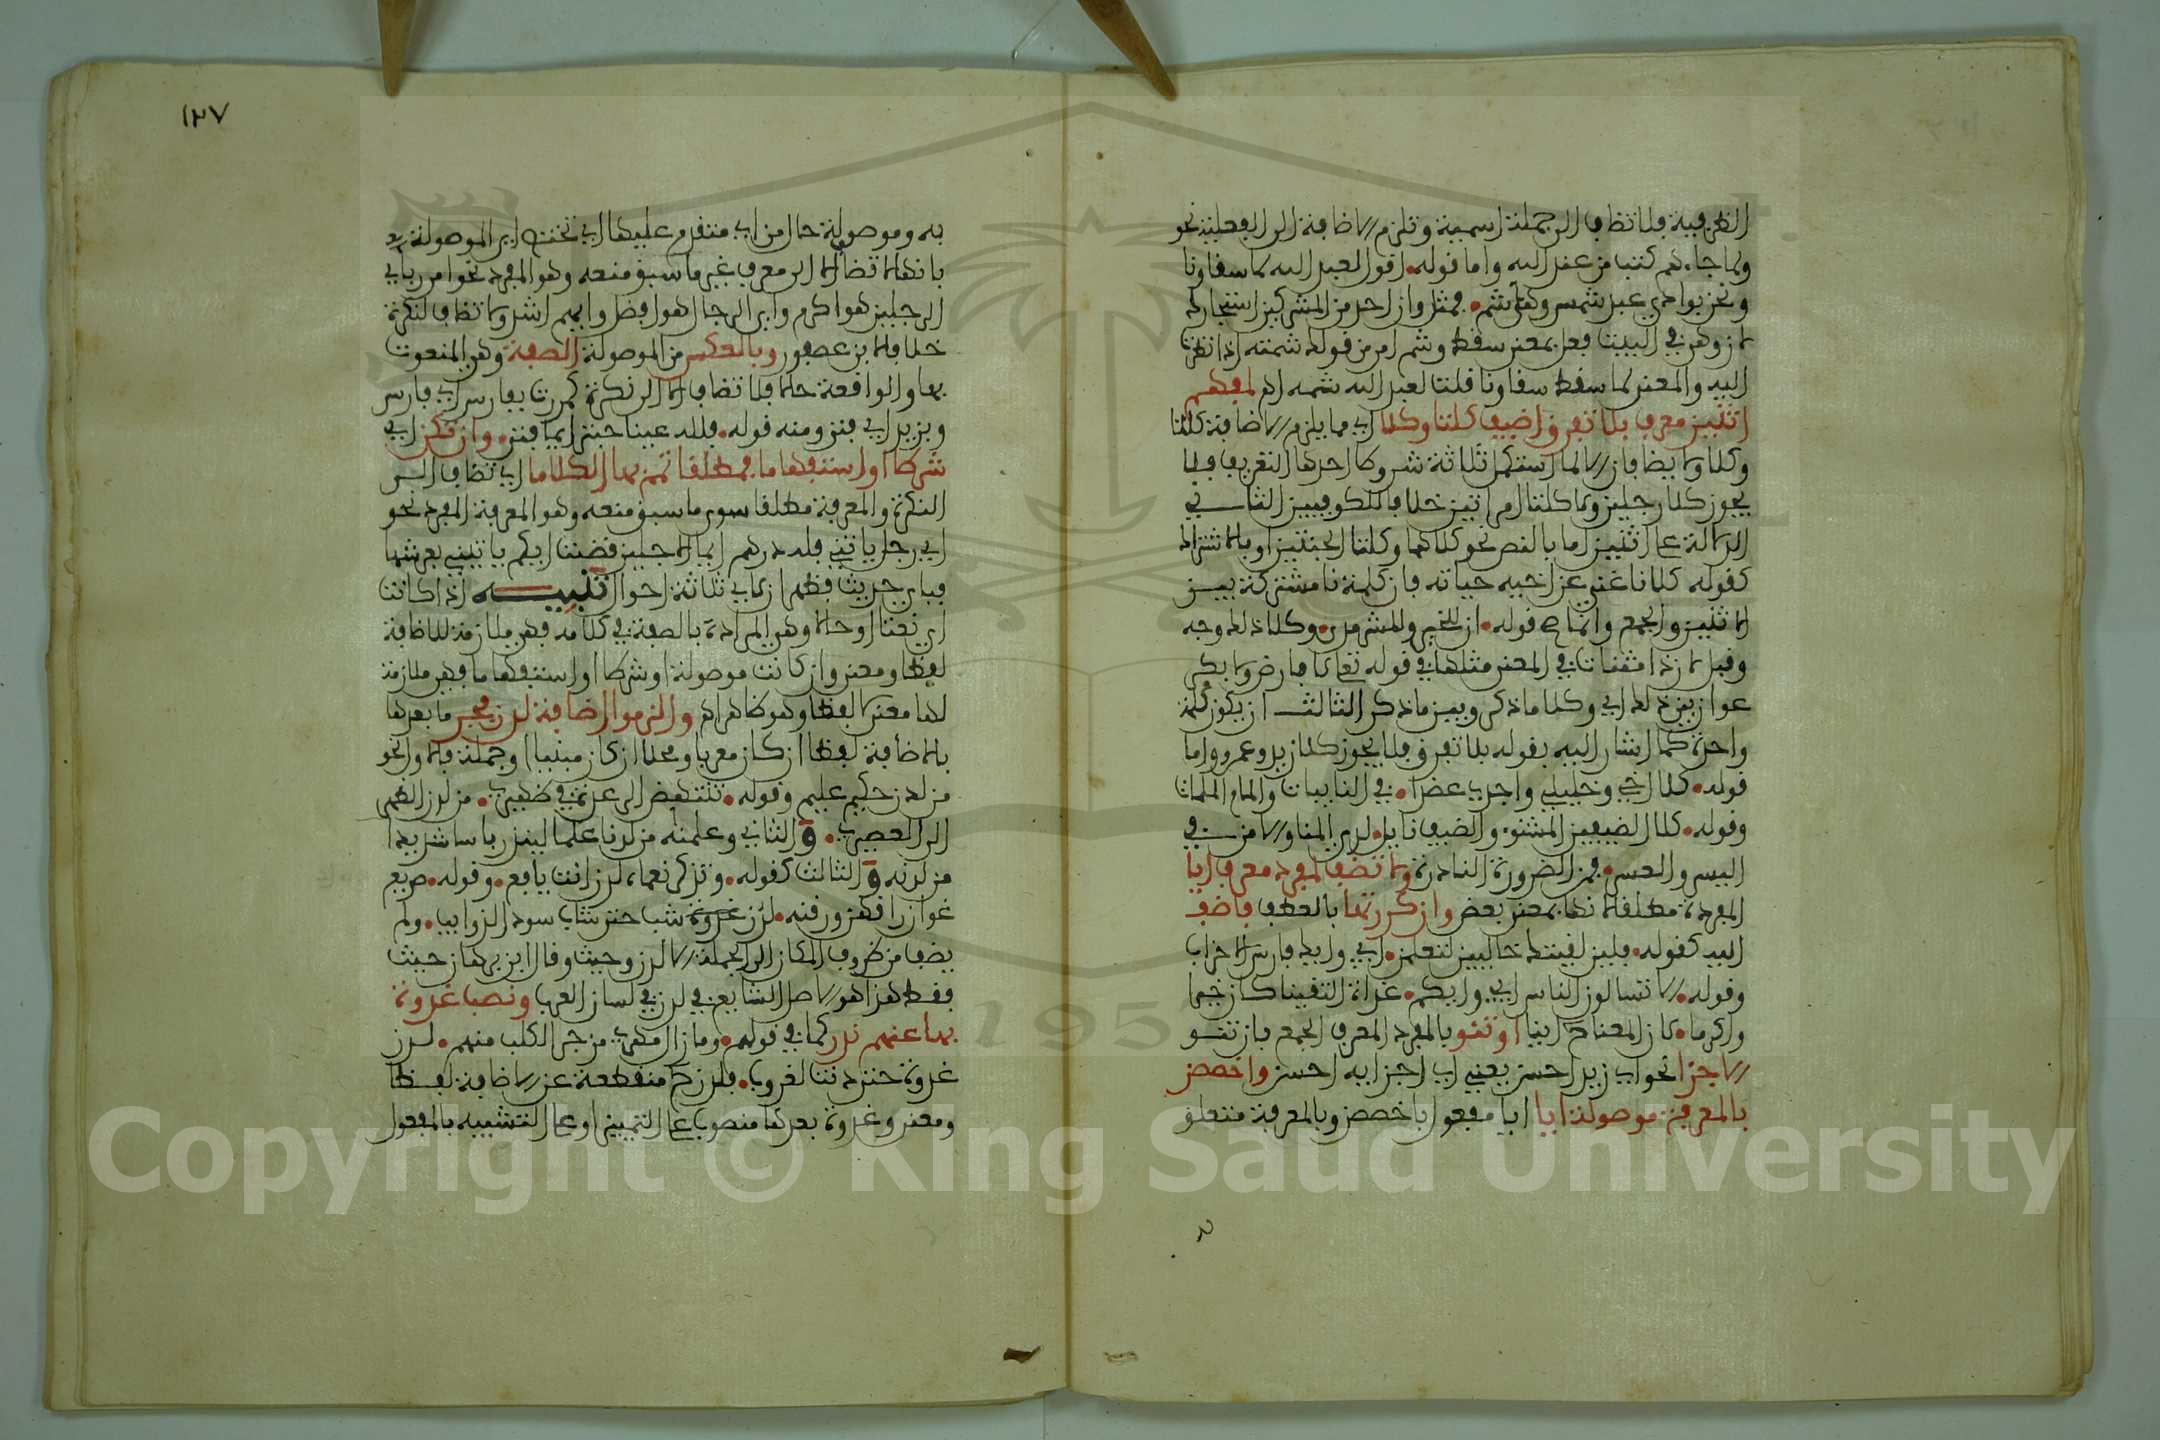 الظرفية فلا تضاف الى جملة اسمية وتلزم الاضافة الى الفعلية نحو
ولما جاءهم كتاب من عند الله واما قوله اقول لعبد الله لما سقاؤنا
ونحن بوادي عبد شمس وهاشم فمثل وان احد من المشركين استجارك
لان وهى في البيت فعل بمعنى سقط وشم امر من قولك شمته اذا نظرت
اليه والمعنى لما سقط سقاؤنا قلت لعبد الله شمه اه لمفهم
اثنين معرف بلا تفرق اضيف كلتا وكلا اي مما يلزم الاضافة كلتا
وكلا ولا يضافان الا لما استكمل ثلاثة شروط احدها التعريف فلا
يجوز كلا رجلين ولا كلتا امراتين خلافا للكوفيين الثاني
الدلالة على اثنين اما بالنص نحو كلاهما وكلتا الجنتين او بالاشتراك
كقوله كلانا غني عن اخيه حياته فان كلمة نا مشتركة بين
الاثنين والجمع وانما صح قوله ان للخير وللشر مدى وكلا ذلك وجه
وقبل لان ذا مثناة في المعنى مثلها في قوله تعالى لا فارض ولا بكر
عوان بين ذلك اي وكلا ما ذكر وبين ما ذكر الثالث ان يكون كلمة
واحدة كما اشار اليه بقوله بلا تفرق فلا يجوز كلا زيد وعمرو واما
قوله كلا اخي وخليلي واجدي عضدا في النايبات والمام الملمات
وقوله كلا الضيفين المشنوء والضيف نايل لدي المنا والامن في
اليسر والعسر فمن الضرورة النادرة ولا تضف لمفرد معرف ايا
المفردة مطلقا لانها بمعنى بعض وان كررتها بالعطف فاضف
اليه كقوله فلين لقيتك خاليين لتعلمن ايي وايك فارس الاحزاب
وقوله الا تسالون الناس ايي وايكم غداة التقينا كان خيرا
واكرما كان المعنا اينا او تنو بالمفرد المعرف الجمع بان تنو
الاجزا نحو اي زيد احسن يعني اي اجزايه احسن واخصص
بالمعرفة موصولة ايا ايا مفعول باخصص وبالمعرفة متعلق
١٢٧
به وموصولة حال من اي متقدم عليها اي تختص اي الموصولة
بانها لا تضاف الا الى معرفة غير ما سبق منعه وهو المفرد نحو امرر باي
الرجلين هو اكرم واي الرجال هو افضل وايهم اشد ولا تضاف لنكرة
خلافا لابن عصفور وبالعكس من الموصولة الصفة وهي المنعوت
بها والواقعة حالا فلا تضاف الا الى نكرة كمررت بفارس اي فارس
وبزيد اي فتى ومنه قوله فلله عينا حبتر ايما فتى وان تكن اي
شرطا او استفهاما فمطلقا تمم بها الكلاما اي تضاف الى
النكرة والمعرفة مطلقا سوى ما سبق منعه وهو المعرفة المفرد نحو
اي رجل ياتيني فله درهم ايما الاجلين قضيت ايكم ياتيني بعرشها
فباي حديث فظهر ان لاي ثلاثة احوال تنبيه اذا كانت
اي نعتا او حالا وهي المرادة بالصفة في كلامه فهي ملازمة للاضافة
لفظا ومعنى وان كانت موصولة او شرطا او استفهاما فهي ملازمة
لها معنى لا لفظا وهو ظاهر اه والزموا اضافة لدن فجر ما بعدها
بالاضافة لفظا ان كان معربا ومحلا ان كان مبنيا او جملة فالاول نحو
من لدن حكيم عليم وقوله تنتهض الرعدة في ظهيري من لدن الظهر
الى العصير والثاني وعلمنه من لدنا علما لينذر باسا شديدا
من لدنه والثالث كقوله وتذكر نعماه لدن انت يافع وقوله صريع
غوان راقهن ورقنه لدن شب حتى شاب سود الذوايب ولم
يضف من ظروف المكان الى الجملة الا لدن وحيث وقال ابن برهان حيث
فقط هذا هو الاصل الشايع في لدن في لسان العرب ونصب غدوة
بها عنهم ندر كما في قولهم وما زال مهري مزجر الكلب منهم لدن
غدوة حتى دنت لغروب فلدن ح منقطعة عن الاضافة لفظا
ومعنى وغدوة بعدها منصوب على التمييز او على التشبيه بالمفعول
Copyright © King Saud University
195